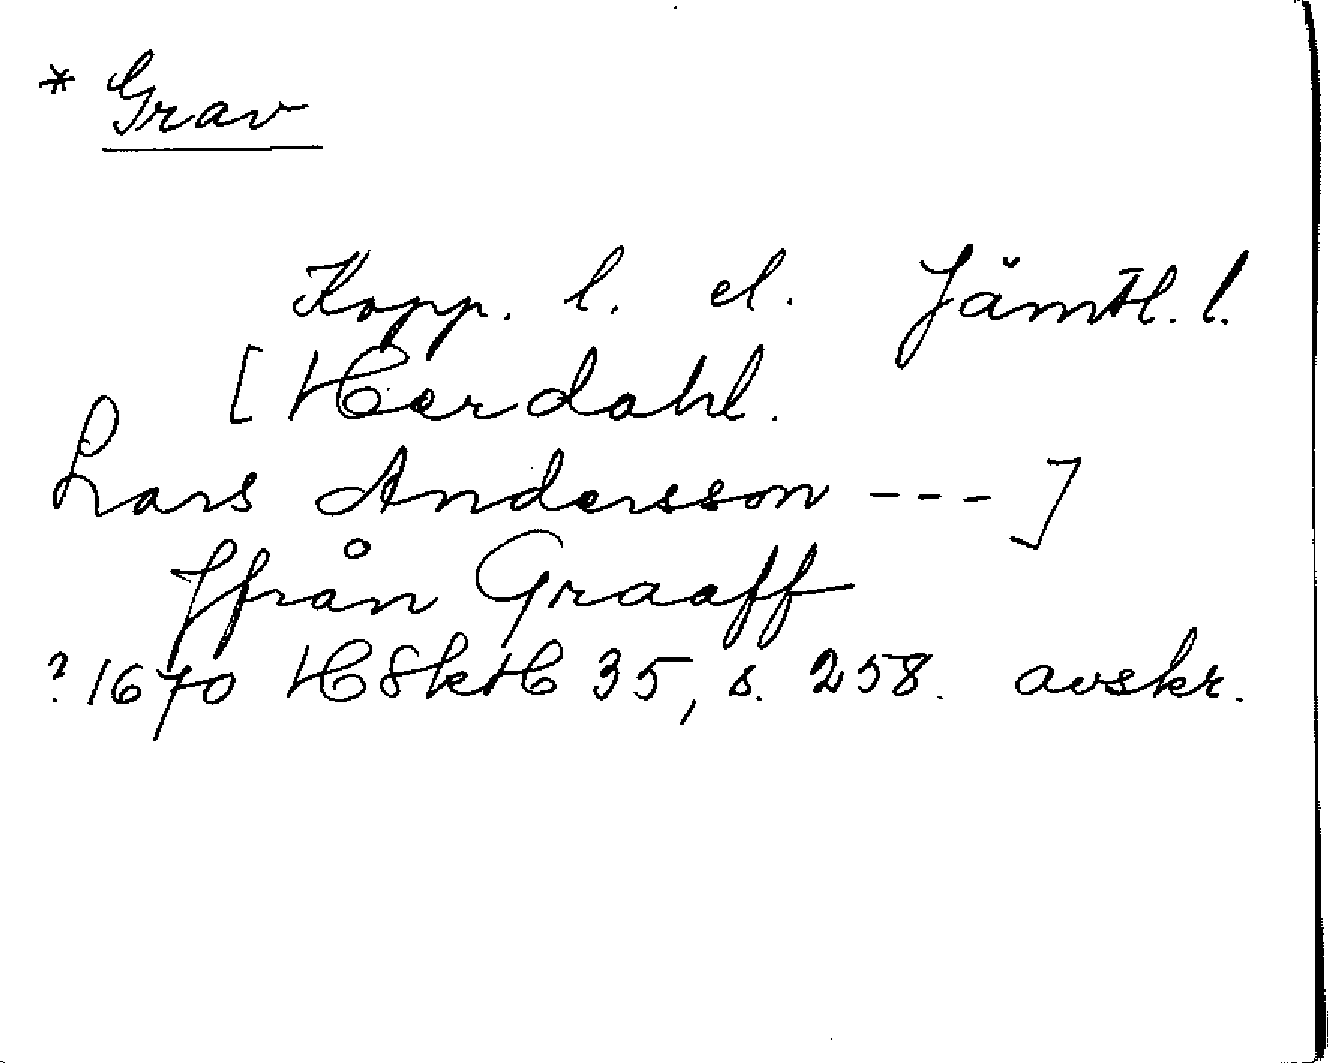 * Grav
Kopp. l. el. Jämtl. l.
[Herdahl.
Lars Andersson ---]
Ifrån Graaff
?1670 HSkH 35, s. 258. avskr.